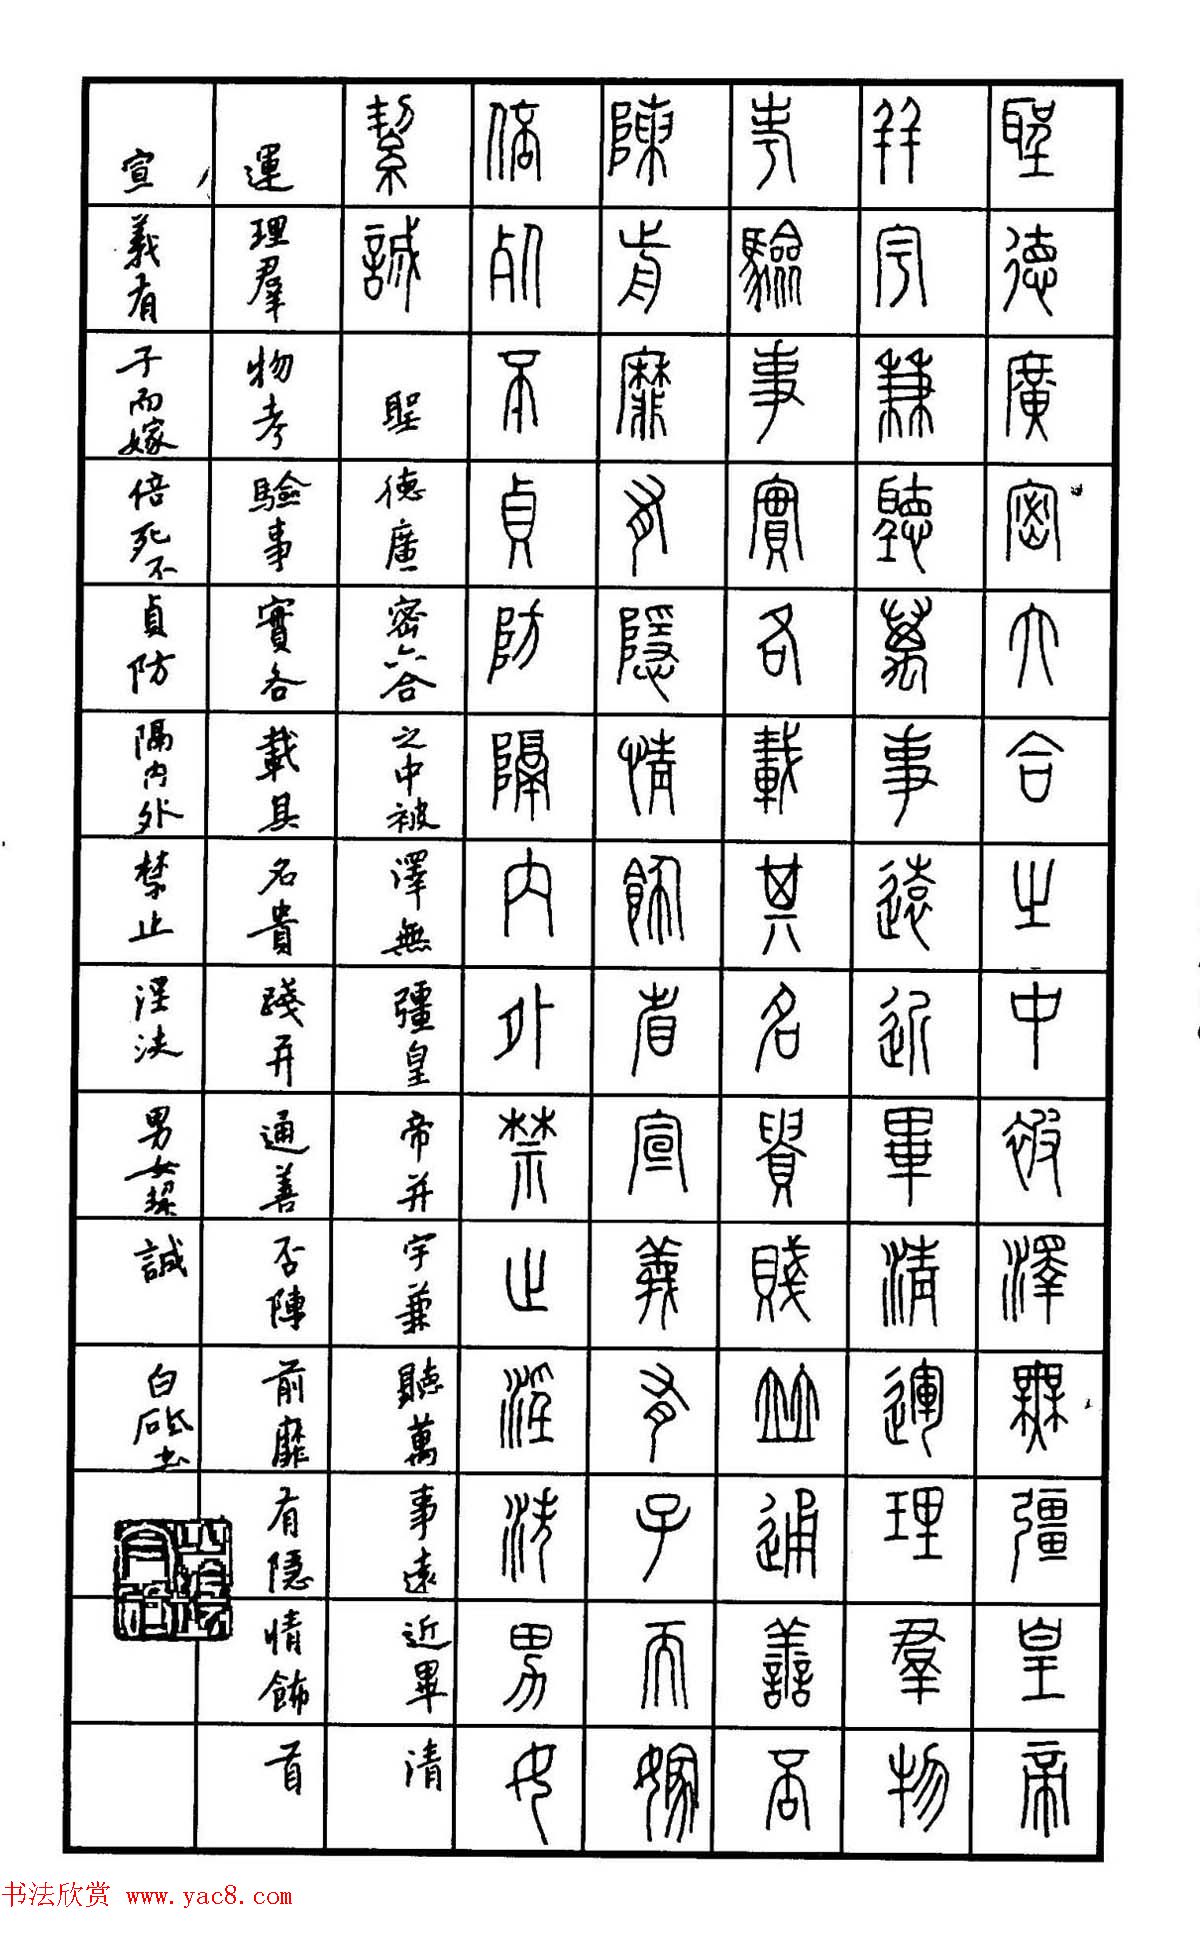 聖德廣密六合之中被澤無疆皇帝
并宇兼聽萬事遠近畢清運理羣物
考驗事實各載其名貴賤並通善否
陳前靡有隱情飾省宣義有子而嫁
倍死不貞防隔內外禁止淫泆男女
絜誠
聖德廣密六合之中被澤無疆皇帝并宇兼聽萬事遠近畢清
運理羣物考驗事實各載其名貴賤并通善否陳前靡有隱情飾省
宣義有子而嫁倍死不貞防隔内外禁止淫泆男女絜誠
白砥書
书法欣赏 www.yac8.com